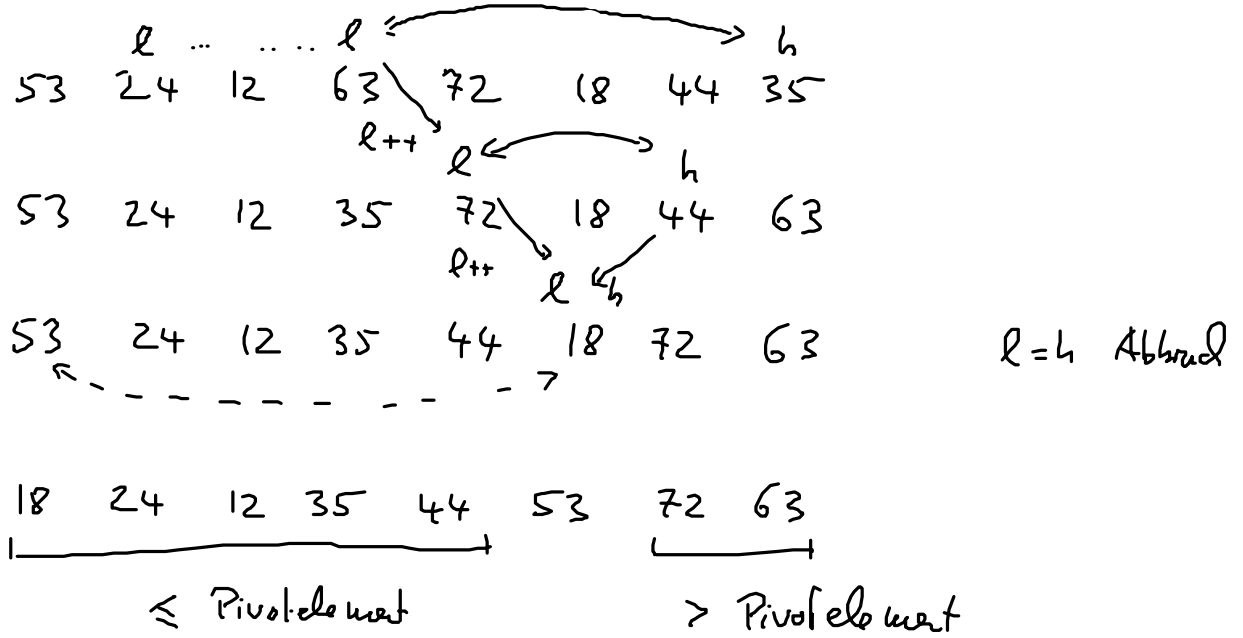 l ... .... l h
53 24 12 63 72 18 44 35
l++
l h
53 24 12 35 72 18 44 63
l++
l h
53 24 12 35 44 18 72 63 l=h Abbruch
18 24 12 35 44 53 72 63
≤ Pivotelement > Pivotelement